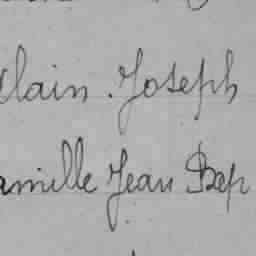 lain. Joseph
amille Jean Bap